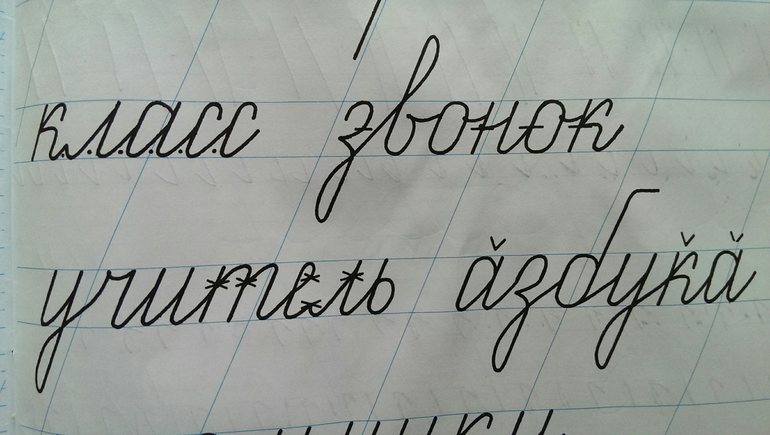 класс звонок
учитель азбука